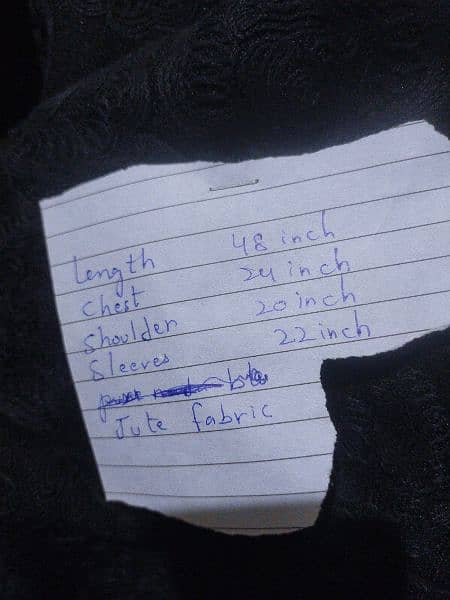 Length 48 inch
Chest 24 inch
Shoulder 20 inch
Sleeves 22 inch
Jute fabric